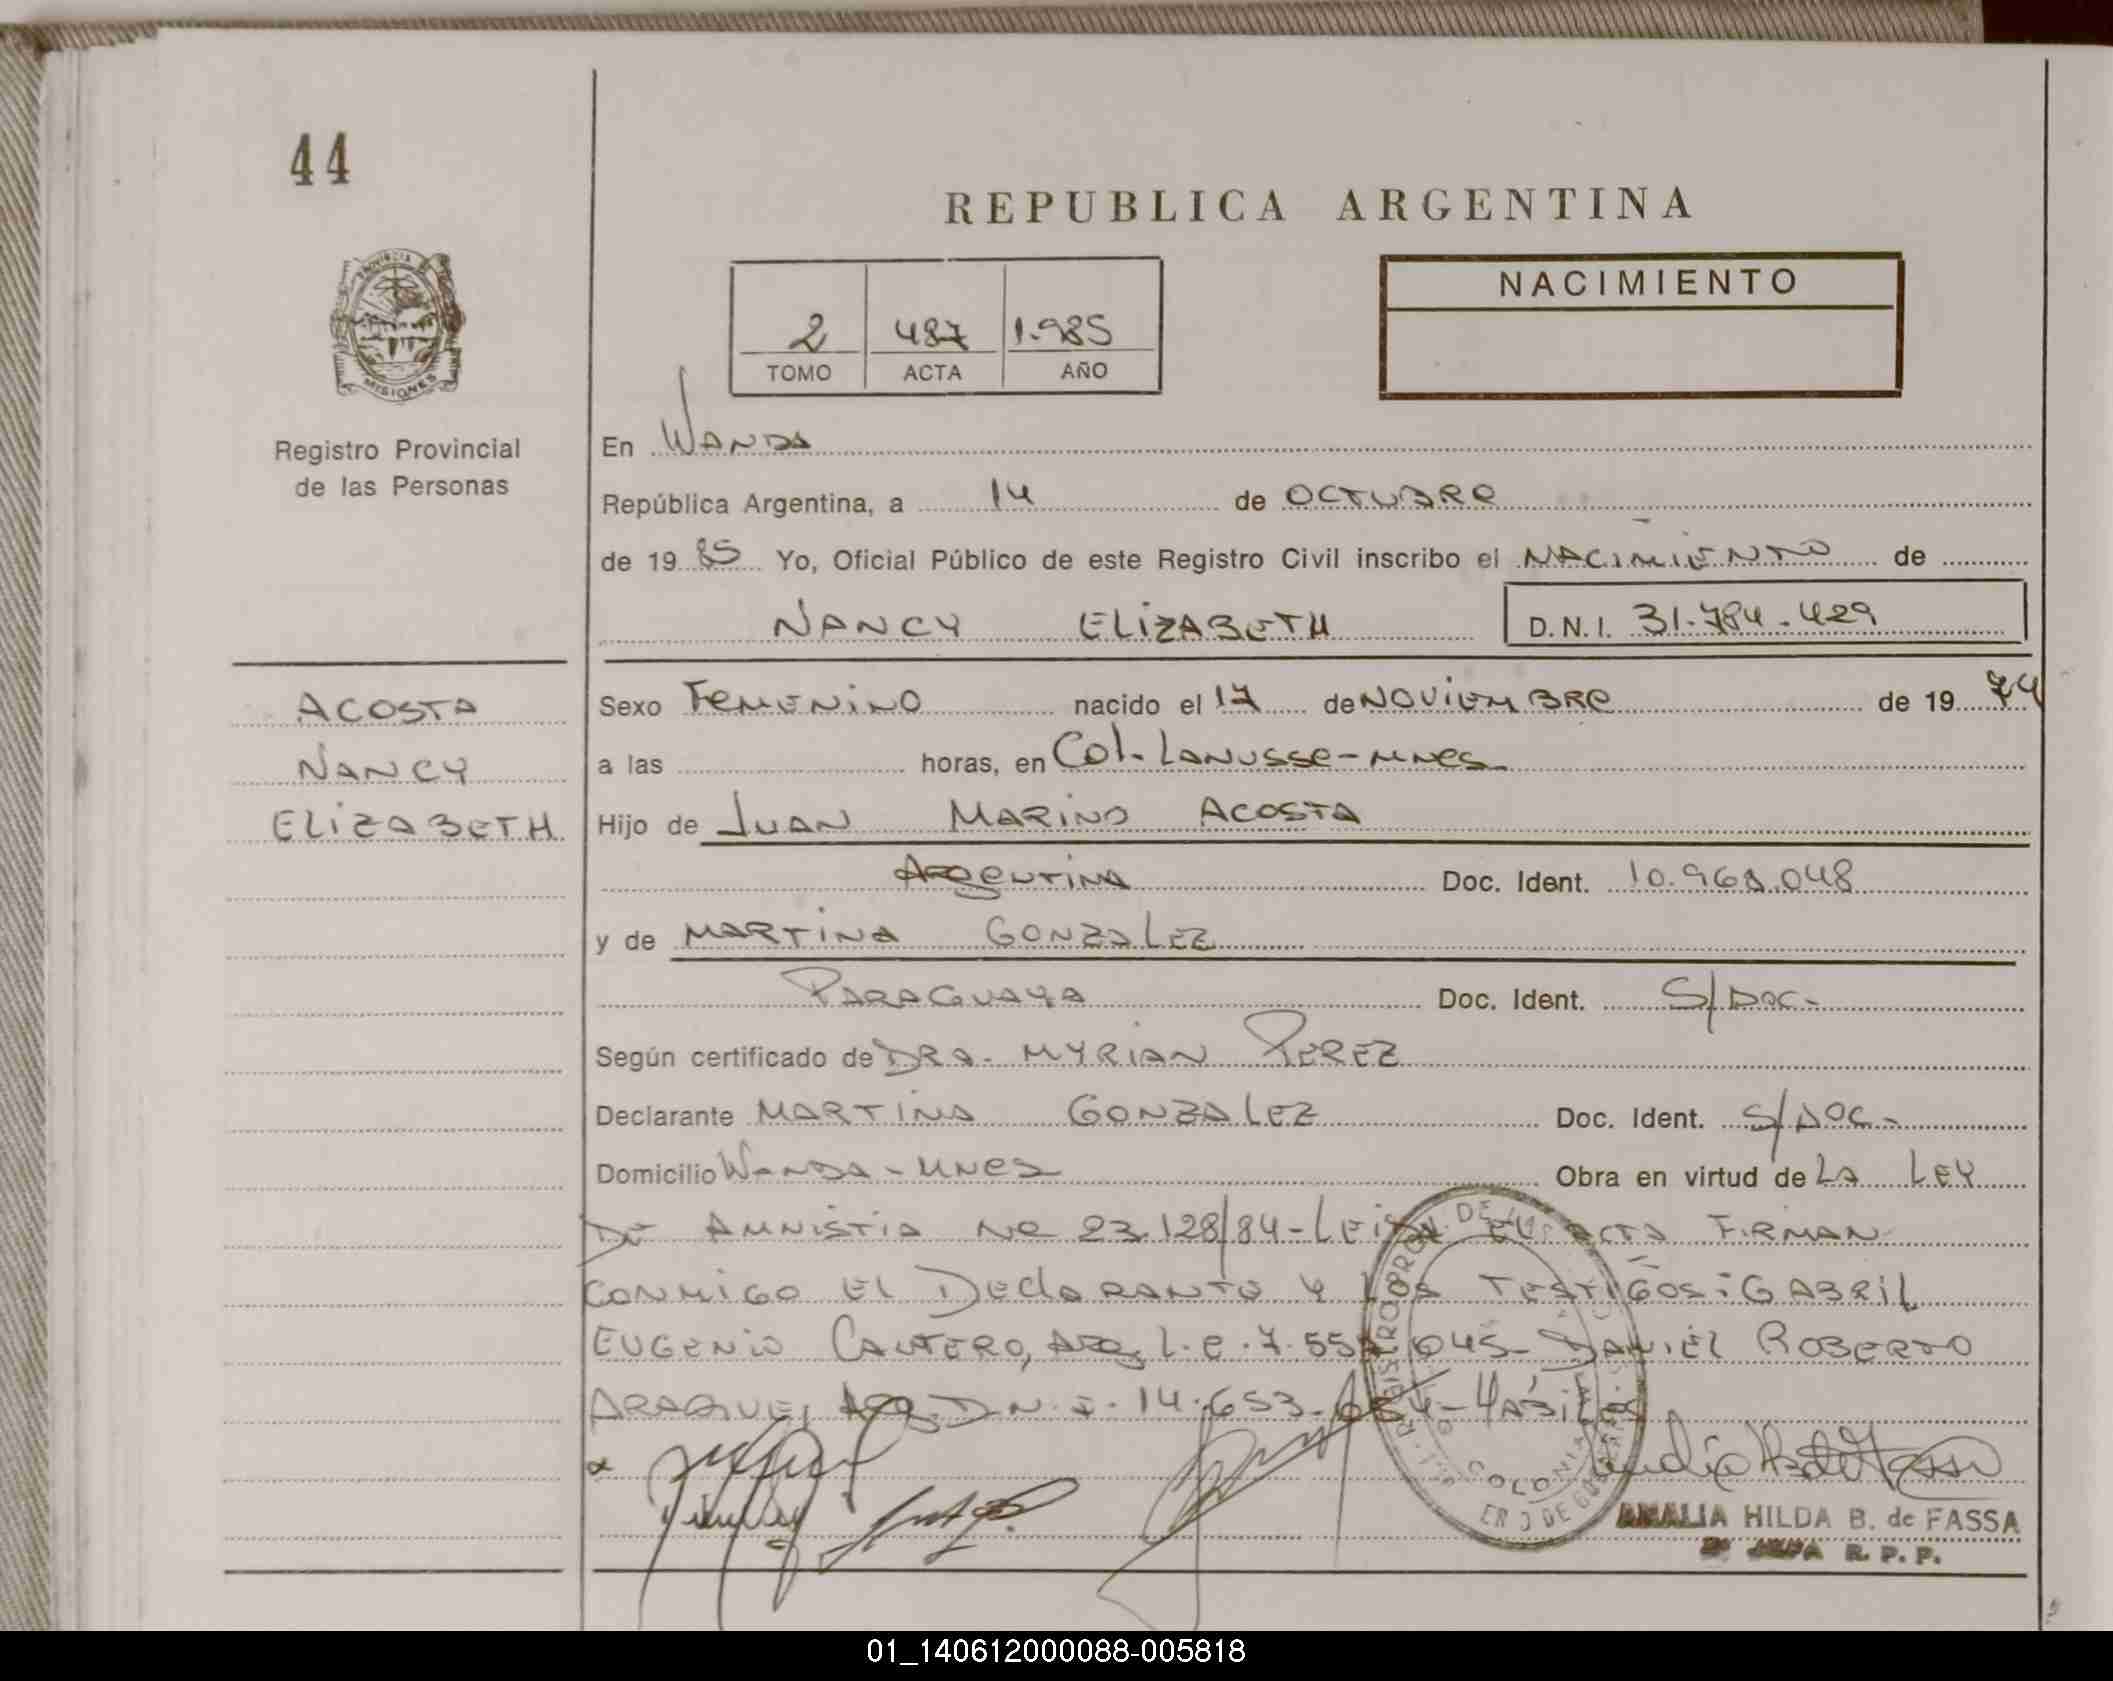 44
REPUBLICA ARGENTINA
PROVINCIA DE
MISIONES
2 487 1.985
TOMO ACTA AÑO
NACIMIENTO
Registro Provincial
de las Personas
En WANDA
República Argentina, a 14 de OCTUBRE
de 19 85 Yo, Oficial Público de este Registro Civil inscribo el NACIMIENTO de
NANCY ELIZABETH D.N.I. 31.784.429
ACOSTA
NANCY
ELIZABETH
Sexo FEMENINO nacido el 17 de NOVIEMBRE de 19 74
a las horas, en Col. LANUSSE-MNES
Hijo de JUAN MARINO ACOSTA
ARGENTINA Doc. Ident. 10.968.048
y de MARTINA GONZALEZ
PARAGUAYA Doc. Ident. S/DOC-
Según certificado de DRA. MYRIAN PEREZ
Declarante MARTINA GONZALEZ Doc. Ident. S/DOC-
Domicilio WANDA-MNES Obra en virtud de LA LEY
DE AMNISTIA NRO 23.128/84-LEIDA EL ACTA FIRMAN
CONMIGO EL DECLARANTE Y LOS TESTIGOS: GABRIL
EUGENIO CANTERO, ARG. L.E. 7.55 045- DANIEL ROBERTO
ARAQUE, ARG. D.N.I. 14.653. - HÁBILES
AMALIA HILDA B. de FASSA
R. P. P.
01_140612000088-005818